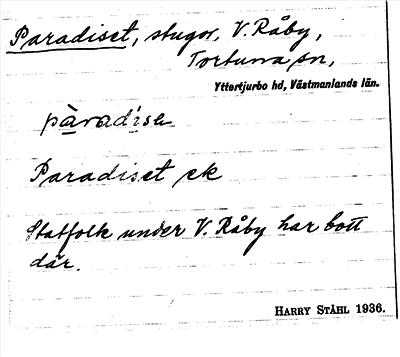 Paradiset, stugor, V. Råby,
Tortuna sn,
Yttertjurbo hd, Västmanlands län.
pàradi̇̀sa
Paradiset ek
Statfolk under V. Råby har bott
där.
HARRY STÅHL 1936.